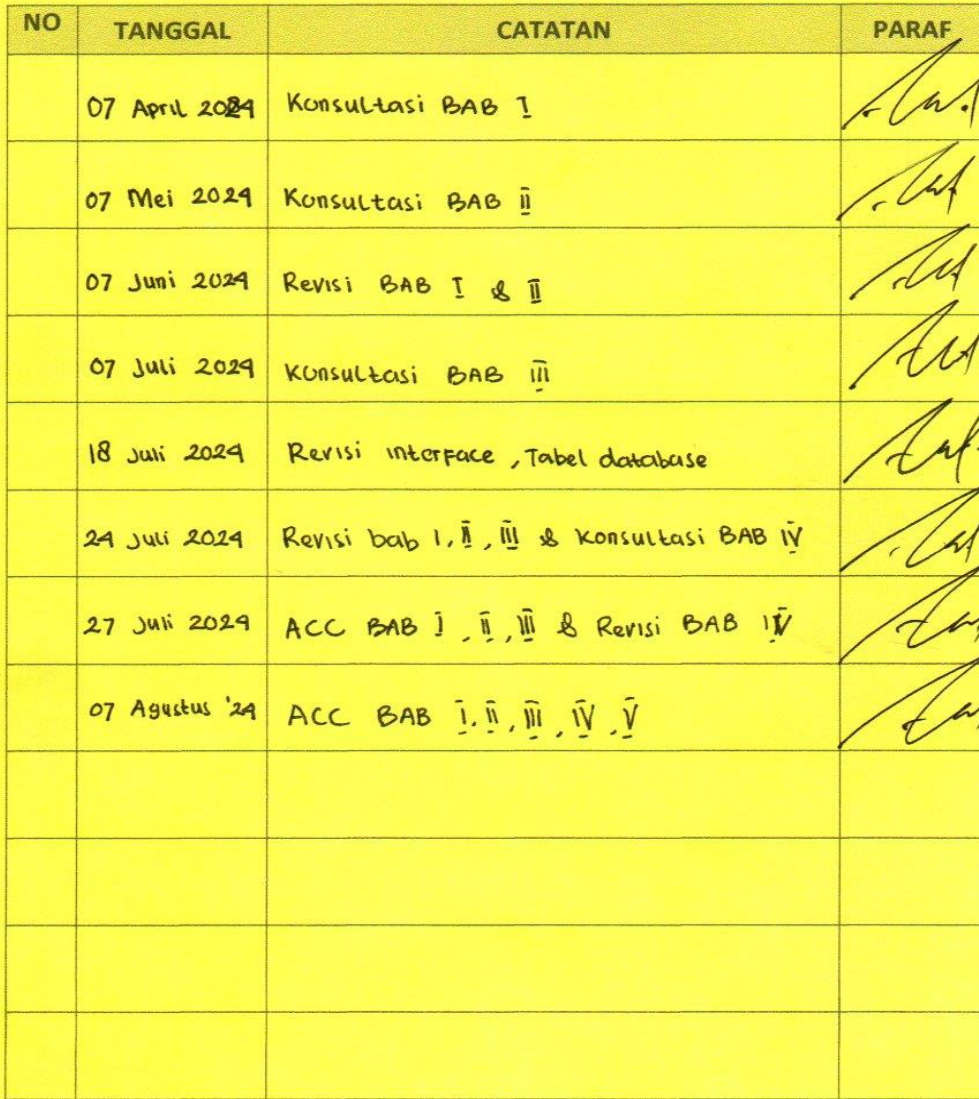 NO TANGGAL CATATAN PARAF
07 April 2024 Konsultasi BAB I
07 Mei 2024 Konsultasi BAB II
07 Juni 2024 Revisi BAB I & II
07 Juli 2024 Konsultasi BAB III
18 Juli 2024 Revisi interface, Tabel database
24 Juli 2024 Revisi bab I, II, III & Konsultasi BAB IV
27 Juli 2024 ACC BAB I, II, III & Revisi BAB IV
07 Agustus '24 ACC BAB I, II, III, IV, V